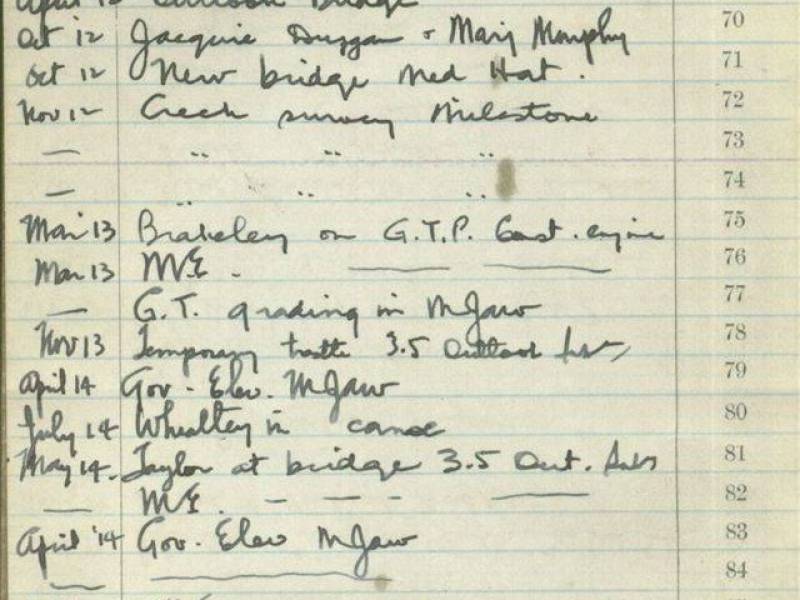 Bridge
Oct 12 Jacquie Duggan & Mary Murphy 70
Oct 12 New bridge Med Hat. 71
Nov 12 Creek survey Milestone 72
— " " " 73
— " " " 74
Mar 13 Brakeley on G.T.P. Const. engine 75
Mar 13 ME. — — 76
— G.T. grading in MJaw 77
Nov 13 Temporary trestle 3.5 Outlook 78
April 14 Gov. Elev. MJaw 79
July 14 Whealtey in canoe 80
May 14. Taylor at bridge 3.5 Out. Subs 81
— ME. - - - — 82
April '14 Gov. Elev MJaw 83
— — 84